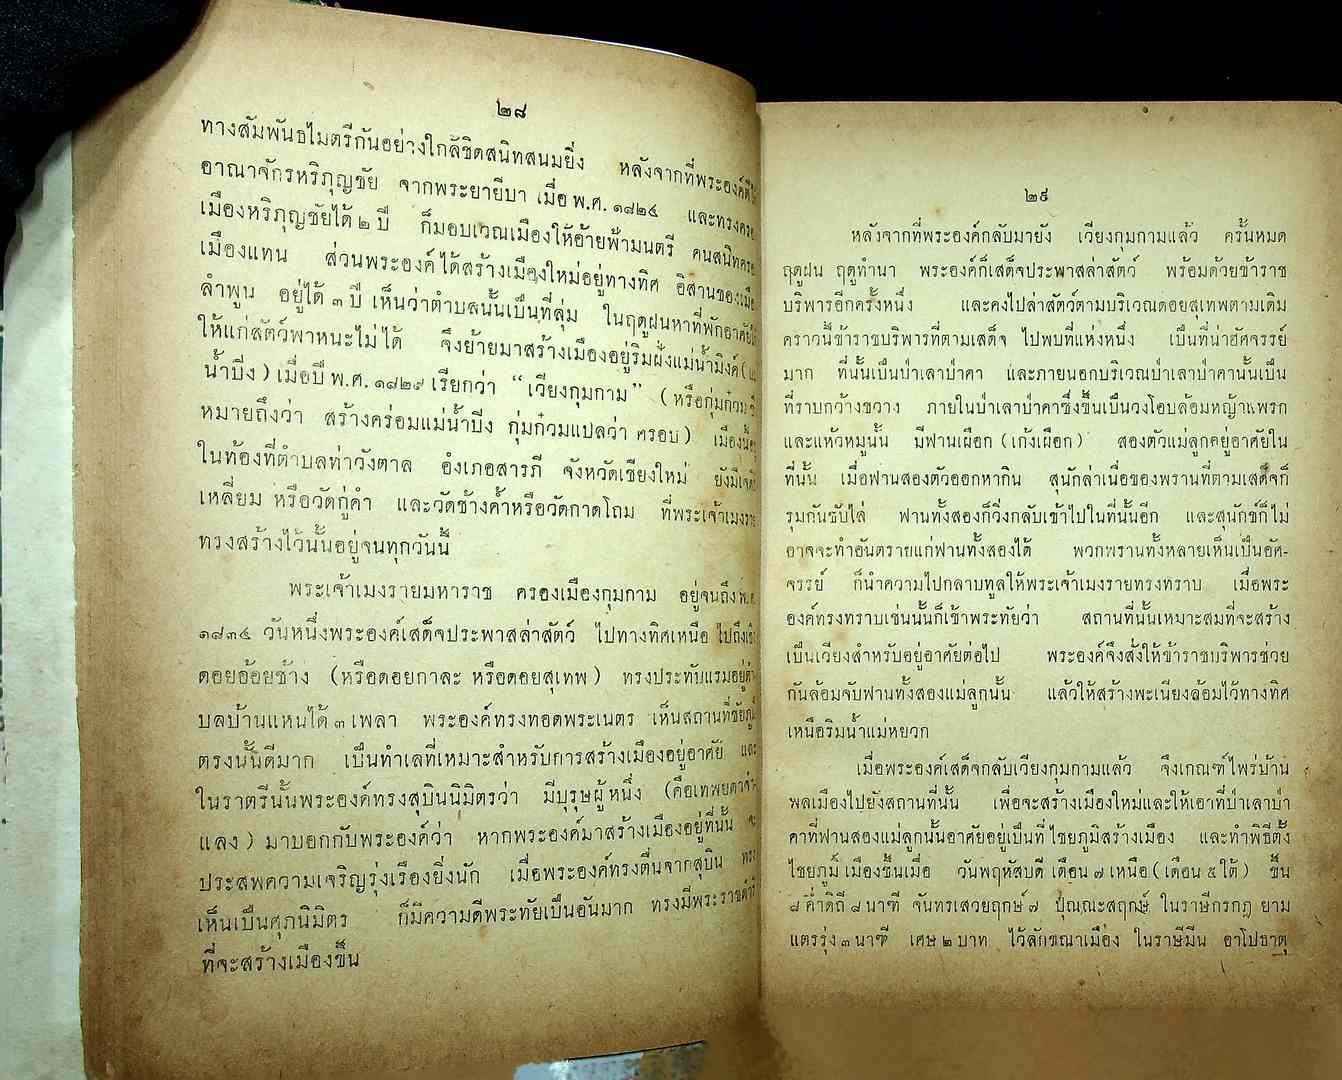 ๒๘
ทางสัมพันธไมตรีกันอย่างใกล้ชิดสนิทสนมยิ่ง หลังจากที่พระองค์ตี
อาณาจักรหริภุญชัย จากพระยายีบา เมื่อ พ.ศ. ๑๘๒๔ และทรงครอง
เมืองหริภุญชัยได้ ๒ ปี ก็มอบเวณเมืองให้อ้ายฟ้ามนตรี คนสนิทครอง
เมืองแทน ส่วนพระองค์ได้สร้างเมืองใหม่อยู่ทางทิศ อิสานของเมือง
ลำพูน อยู่ได้ ๓ ปี เห็นว่าตำบลนั้นเป็นที่ลุ่ม ในฤดูฝนหาที่พักอาศัยให้
ให้แก่สัตว์พาหนะไม่ได้ จึงย้ายมาสร้างเมืองอยู่ริมฝั่งแม่น้ำมิงค์ (แม่
น้ำปิง) เมื่อปี พ.ศ. ๑๘๒๙ เรียกว่า “เวียงกุมกาม” (หรือกุ่มก๋วม ซึ่ง
หมายถึงว่า สร้างคร่อมแม่น้ำปิง กุ่มก๋วมแปลว่า ครอบ) เมืองนี้อยู่
ในท้องที่ตำบลท่าวังตาล อำเภอสารภี จังหวัดเชียงใหม่ ยังมีเจดีย์
เหลี่ยม หรือวัดกู่คำ และวัดช้างค้ำหรือวัดกาดโถม ที่พระเจ้าเมงราย
ทรงสร้างไว้นั้นอยู่จนทุกวันนี้
พระเจ้าเมงรายมหาราช ครองเมืองกุมกาม อยู่จนถึง พ.ศ.
๑๘๓๔ วันหนึ่งพระองค์เสด็จประพาสล่าสัตว์ ไปทางทิศเหนือ ไปถึงเชิง
ดอยอ้อยช้าง (หรือดอยกาละ หรือดอยสุเทพ) ทรงประทับแรมอยู่ตำ
บลบ้านแหนได้ ๓ เพลา พระองค์ทรงทอดพระเนตร เห็นสถานที่ชัยภูมิ
ตรงนั้นดีมาก เป็นทำเลที่เหมาะสำหรับการสร้างเมืองอยู่อาศัย และ
ในราตรีนั้นพระองค์ทรงสุบินนิมิตรว่า มีบุรุษผู้หนึ่ง (คือเทพยดาจำ
แลง) มาบอกกับพระองค์ว่า หากพระองค์มาสร้างเมืองอยู่ที่นั้น จะ
ประสพความเจริญรุ่งเรืองยิ่งนัก เมื่อพระองค์ทรงตื่นจากสุบิน ทรง
เห็นเป็นศุภนิมิตร ก็มีความดีพระทัยเป็นอันมาก ทรงมีพระราชดำริ
ที่จะสร้างเมืองขึ้น
๒๙
หลังจากที่พระองค์กลับมายัง เวียงกุมกามแล้ว ครั้นหมด
ฤดูฝน ฤดูทำนา พระองค์ก็เสด็จประพาสล่าสัตว์ พร้อมด้วยข้าราช
บริพารอีกครั้งหนึ่ง และคงไปล่าสัตว์ตามบริเวณดอยสุเทพตามเดิม
คราวนี้ข้าราชบริพารที่ตามเสด็จ ไปพบที่แห่งหนึ่ง เป็นที่น่าอัศจรรย์
มาก ที่นั้นเป็นป่าเลาป่าคา และภายนอกบริเวณป่าเลาป่าคานั้นเป็น
ที่ราบกว้างขวาง ภายในป่าเลาป่าคาซึ่งขึ้นเป็นวงโอบล้อมหญ้าแพรก
และแห้วหมูนั้น มีฟานเผือก (เก้งเผือก) สองตัวแม่ลูกอยู่อาศัยใน
ที่นั้น เมื่อฟานสองตัวออกหากิน สุนักล่าเนื้อของพรานที่ตามเสด็จก็
รุมกันขับไล่ ฟานทั้งสองก็วิ่งกลับเข้าไปในที่นั้นอีก และสุนักข์ก็ไม่
อาจจะทำอันตรายแก่ฟานทั้งสองได้ พวกพรานทั้งหลายเห็นเป็นอัศ-
จรรย์ ก็นำความไปกลาบทูลให้พระเจ้าเมงรายทรงทราบ เมื่อพระ
องค์ทรงทราบเช่นนั้นก็เข้าพระทัยว่า สถานที่นั้นเหมาะสมที่จะสร้าง
เป็นเวียงสำหรับอยู่อาศัยต่อไป พระองค์จึงสั่งให้ข้าราชบริพารช่วย
กันล้อมจับฟานทั้งสองแม่ลูกนั้น แล้วให้สร้างพะเนียงล้อมไว้ทางทิศ
เหนือริมน้ำแม่หยวก
เมื่อพระองค์เสด็จกลับเวียงกุมกามแล้ว จึงเกณฑ์ไพร่บ้าน
พลเมืองไปยังสถานที่นั้น เพื่อจะสร้างเมืองใหม่และให้เอาที่ป่าเลาป่า
คาที่ฟานสองแม่ลูกนั้นอาศัยอยู่เป็นที่ไชยภูมิสร้างเมือง และทำพิธีตั้ง
ไชยภูมิ์ เมืองขึ้นเมื่อ วันพฤหัสบดี เดือน ๗ เหนือ (เดือน ๕ ใต้) ขึ้น
๘ ค่ำดิถี ๘ นาฑี จันทรเสวยฤกษ์ ๗ ปุณณะสฤกษ์ ในราษีกรกฎ ยาม
แตรรุ่ง ๓ นาฑี เศษ ๒ บาท ไว้ลักขณาเมือง ในราษีมีน อาโปธาตุ